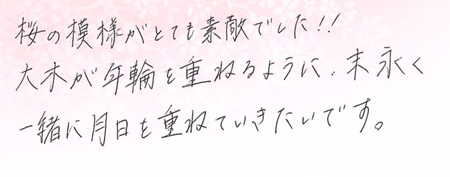 桜の模様がとても素敵でした!!
大木が年輪を重ねるように、末永く
一緒に月日を重ねていきたいです。